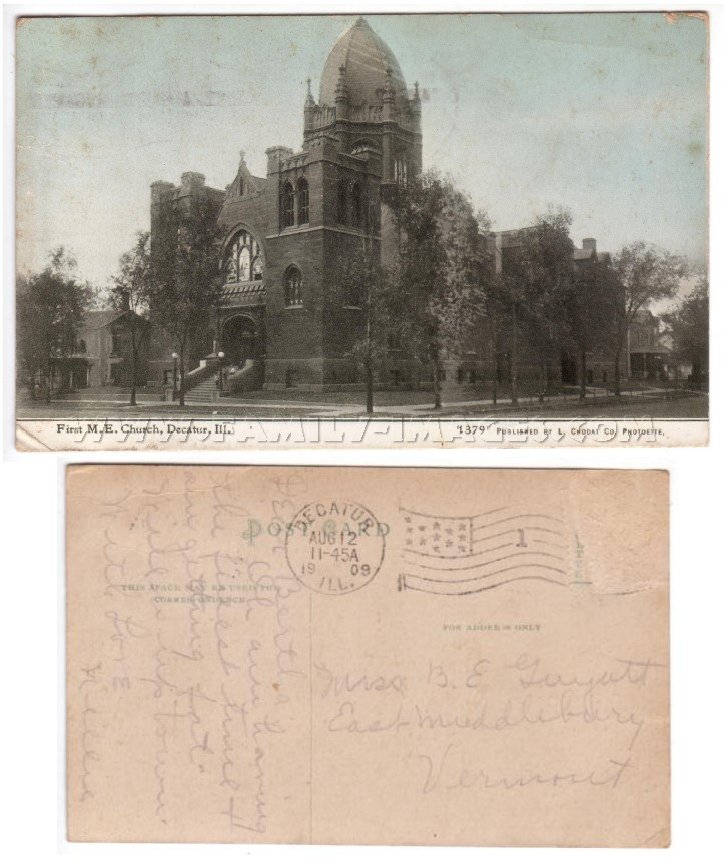 First M.E. Church, Decatur, Ill.
1379 PUBLISHED BY L. CHODAT CO. PHOTOETTE.
WWW.FAMILY-IMAGES.COM
POST CARD
DECATUR
AUG 12
11-45A
1909
ILL.
1
THIS SPACE MAY BE USED FOR
CORRESPONDENCE
FOR ADDRESS ONLY
Dear Bertha
We are having
the finest time &
am getting fat.
Will up town
With Love
Miss B. E.
East Middlebury
Vermont